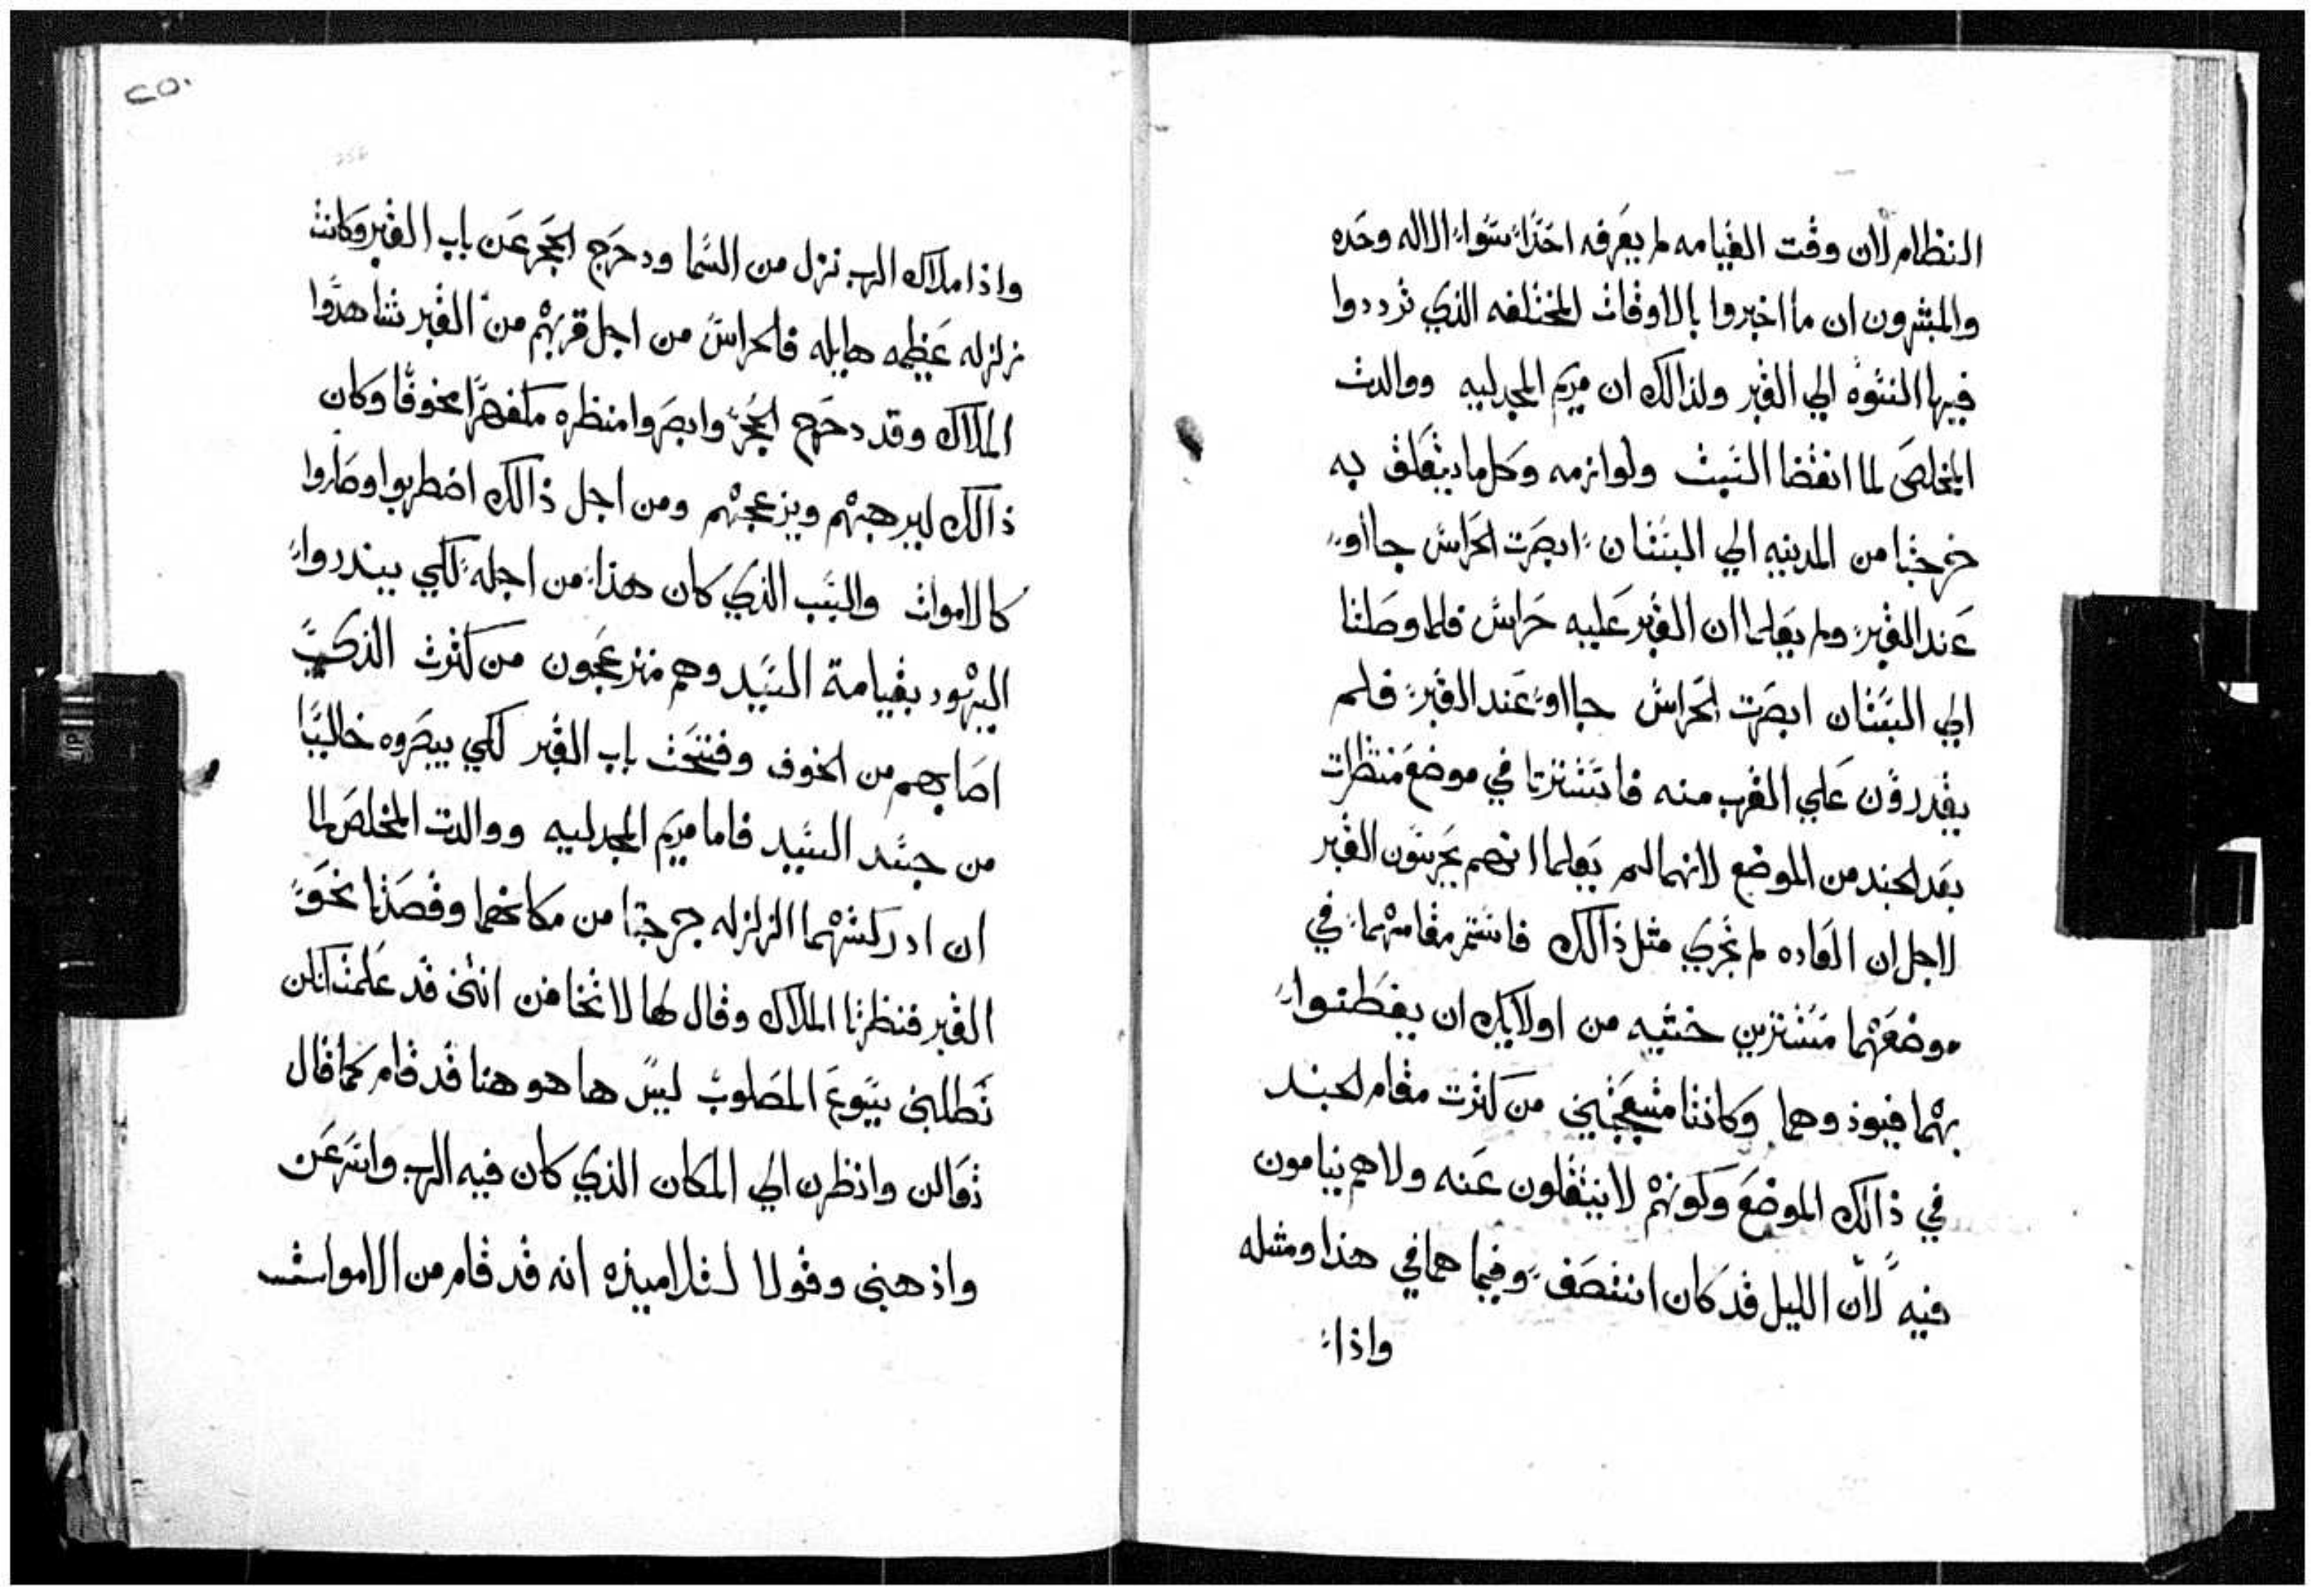 النظام لان وقت القيامه لم يعرفه احدا سوا الاله وحده
والمبشرون ان ما اخبروا بالاوقات المختلفه الذي ترددوا
فيها النسوه الي القبر ولذالك ان مريم المجدليه ووالدت
المخلص لما انقضا السبت ولوازمه وكل ما يتعلق به
خرجتا من المدينه الي البستان ابصرت الحراس جااو
عند القبر ولم يعلما ان القبر عليه حراس فلما وصلتا
الي البستان ابصرت الحراس جااو عند القبر فلم
يقدرون علي القرب منه فاستترتا في موضع منتظرات
بعد الجند من الموضع لانهما لم يعلما انهم يحرسون القبر
لاجل ان العاده لم تجري مثل ذالك فاستتر مقامهما في
موضعهما مستترين خشيه من اولايك ان يفطنوا
بهما فيوذوهما وكانتا متعجبتين من كثرت مقام الجند
في ذالك الموضع وكونهم لا ينتقلون عنه ولا هم نيامون
فيه لان الليل قد كان انتصف وفيما هما في هذا ومثله
واذا
٢٥٠
واذا ملاك الرب نزل من السما ودحرج الحجر عن باب القبر وكانت
زلزله عظيمه هايله فالحراس من اجل قربهم من القبر شاهدوا
الملاك وقد دحرج الحجر وابصروا منظره مكفهرا مخوفا وكان
ذالك ليرهبهم ويزعجهم ومن اجل ذالك اضطربوا وصاروا
كالاموات والسبب الذي كان هذا من اجله لكي ينددوا
اليهود بقيامة السيد وهم منزعجون من كثرت الذي
اصابهم من الخوف وفتحت باب القبر لكي يبصروه خاليا
من جسد السيد فاما مريم المجدليه ووالدت المخلص لما
ان ادركتهما الزلزله خرجتا من مكانهما وقصدتا نحو
القبر فنظرتا الملاك وقال لها لا تخافن انتن قد علمت انكن
تطلبن يسوع المصلوب ليس ها هو هنا قد قام كما قال
تعالن وانظرن الي المكان الذي كان فيه الرب واسرعن
واذهبني وقولا لتلاميذه انه قد قام من الاموات